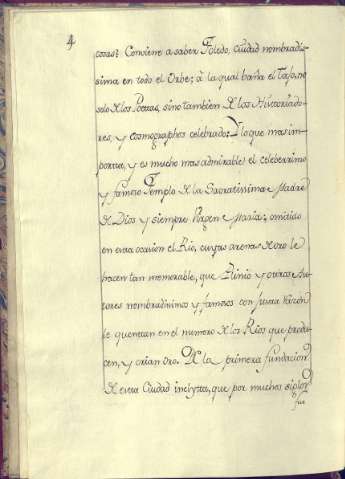 4
cosas? Conviene a saber Toledo, Ciudad nombradi-
sima en todo el Orbe; à la qual baña el Tajo, no
solo de los Poetas, sino tambien de los Historiado-
res, y Cosmographos celebrado: Y lo que mas im-
porta, y es mucho mas admirable el celeberrimo
y famoso Templo de la Sacratissima Madre
de Dios y siempre Virgen Maria; omitido
en esta ocasion el Rio, cuyas arenas de oro le
hacen tan memorable, que Plinio y otros Au-
tores nombradisimos y famosos con justa razon
le quentan en el numero de los Rios que produ-
cen, y crian oro. De la primera fundacion
de esta Ciudad inclyta, que por muchos siglos
fue